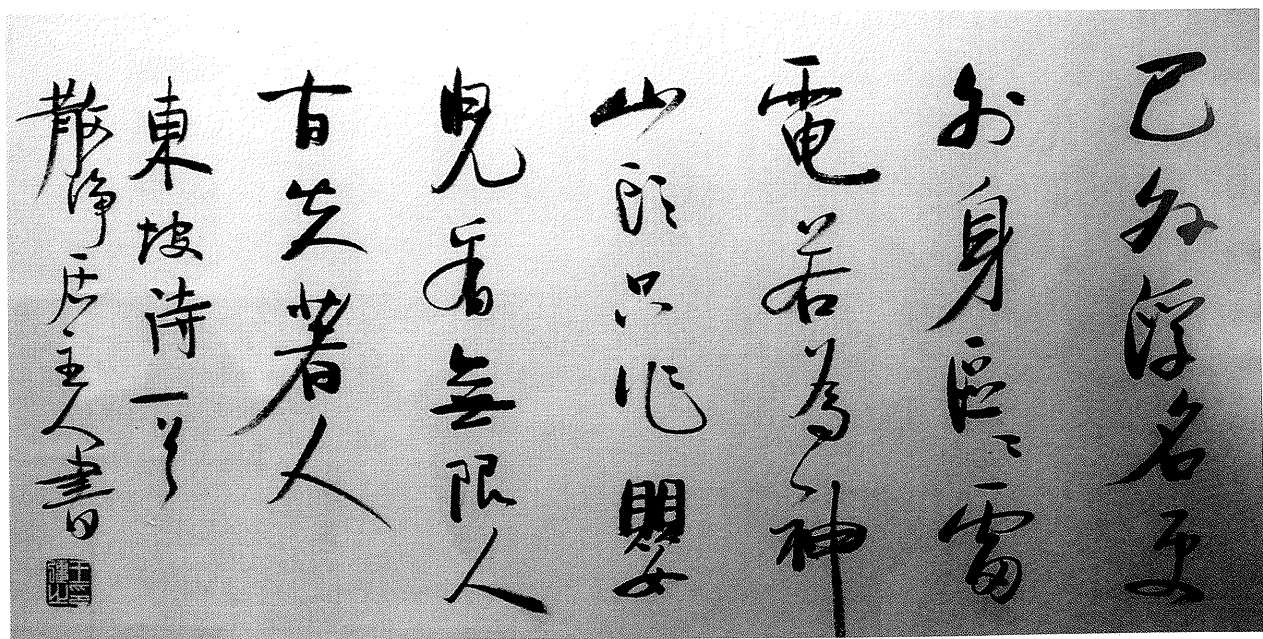 已外浮名更
外身區區雷
電若為神
山頭只作嬰
兒看無限人
間失著人
東坡詩一首
散淨居主人書